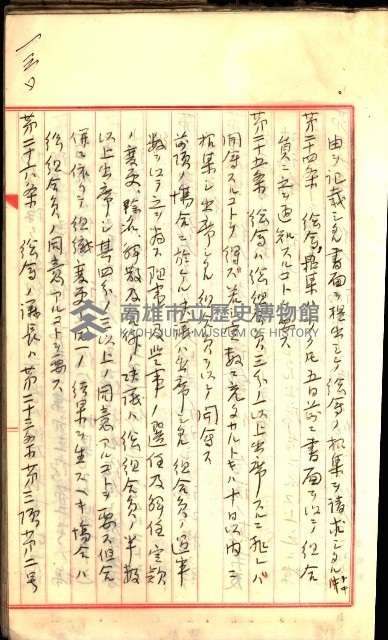 由ヲ記載シタル書面ヲ提出シテ総会ノ招集ヲ請求シタル時
第二十四条　総会ノ招集ハ少クトモ五日前ニ書面ヲ以テ組合
員ニ之ヲ通知スルコトヲ要ス
第二十五条　総会ハ総組合員三分ノ一以上出席スルニ非レバ
開会スルコトヲ得ズ若シ定数ニ充タザルトキハ十日以内ニ
招集シ出席シタル組合員ヲ以テ開会ス
前項ノ場合ニ於ケル決議ハ出席シタル組合員ノ過半
数ヲ以テ之ヲ為ス理事及監事ノ選任及解任定款
ノ変更、除名、解散及合併ノ決議ハ総組合員ノ半数
以上出席シ其四分ノ三以上ノ同意アルコトヲ要ス但合
併ニ依リテ組織変更ト同一ノ結果ヲ生スヘキ場合ハ
総組合員ノ同意アルコトヲ要ス
第二十六条　総会ノ議長ハ第二十三条第三項第二号
高雄市立歷史博物館
KAOHSIUNG MUSEUM OF HISTORY